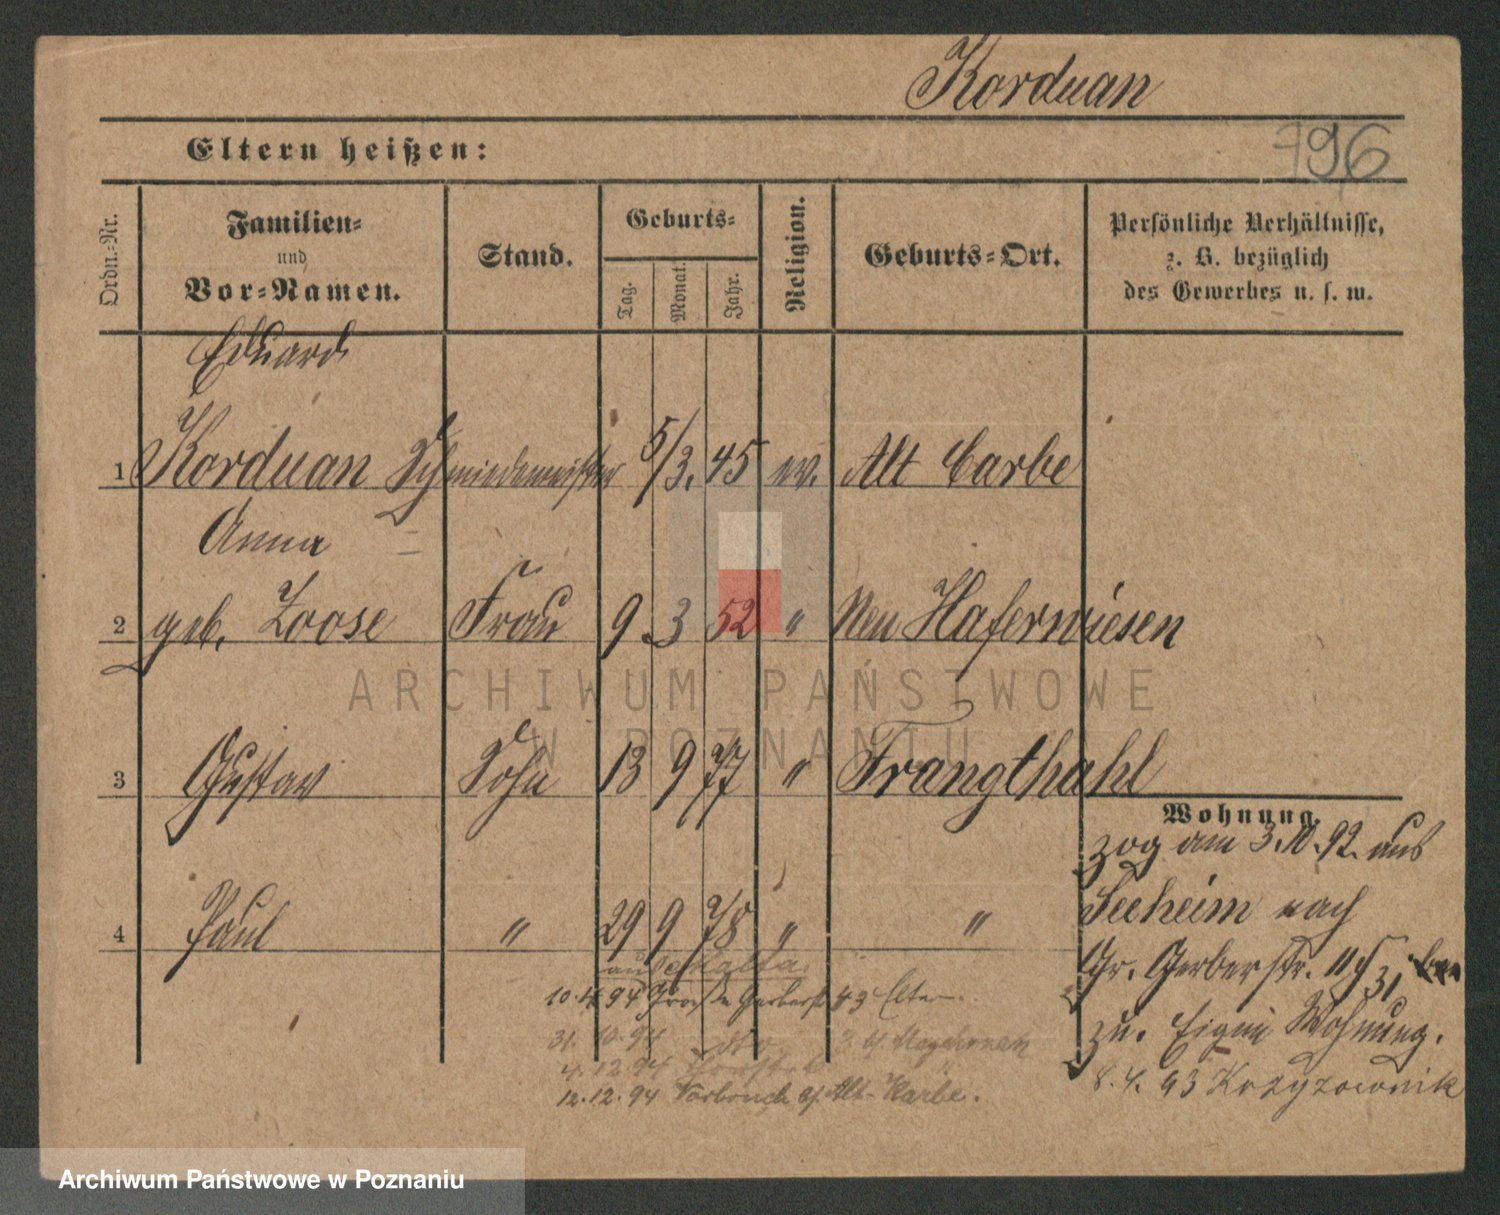 Korduan
796
Eltern heißen:
Ordn.-Nr.
Familien-
und
Vor-Namen.
Stand.
Geburts-
Tag.
Monat.
Jahr.
Religion.
Geburts-Ort.
Persönliche Verhältnisse,
z. B. bezüglich
des Gewerbes u. s. w.
Eduard
1 Korduan Schmiedemeister 5/3. 45 ev. Alt Carbe
Anna
2 geb. Loose Frau 9. 3 52 " Neu Haferwiesen
3 Gustav Sohn 13 9 77 " Frangthahl
Wohnung
zog am 3.10.92. aus
4 Paul " 29 9 78 " "
Seeheim nach
Gr. Gerberstr.
zu. Eigene Wohnung.
8.4.93 Krzyzownik
aus
10.4.94 Große Gerberstr 43 Eltern.
31.10.94
4.12.94
12.12.94 Vorbruch b/ Alt-Karbe.
ARCHIWUM PAŃSTWOWE
W POZNANIU
Archiwum Państwowe w Poznaniu